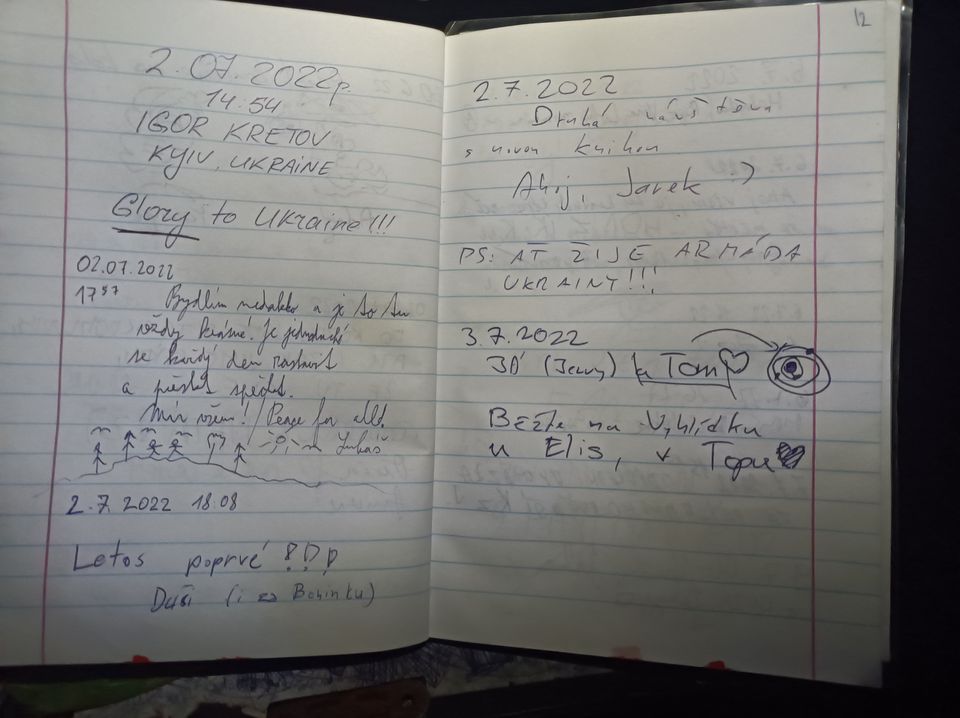 2.07.2022р.
14:54
IGOR KRETOV
KYIV, UKRAINE
Glory to Ukraine!!!
02.07.2022
17 57 Bydlím nedaleko a je to tu
vždy krásné. Je jednoduché
se každý den zastavit
a přestat spěchat.
Mír všem! / Peace for all.
Lukáš
2.7.2022 18:08
Letos poprvé !!!
Duši (i za Bohinku)
12
2.7.2022
Druhá návštěva
s novou knihou
Ahoj, Jarek
PS: AŤ ŽIJE ARMÁDA
UKRAINY!!!
3.7.2022
JÁ (Jerry) Tom
Bežte na Vyhlídku
u Elis, v